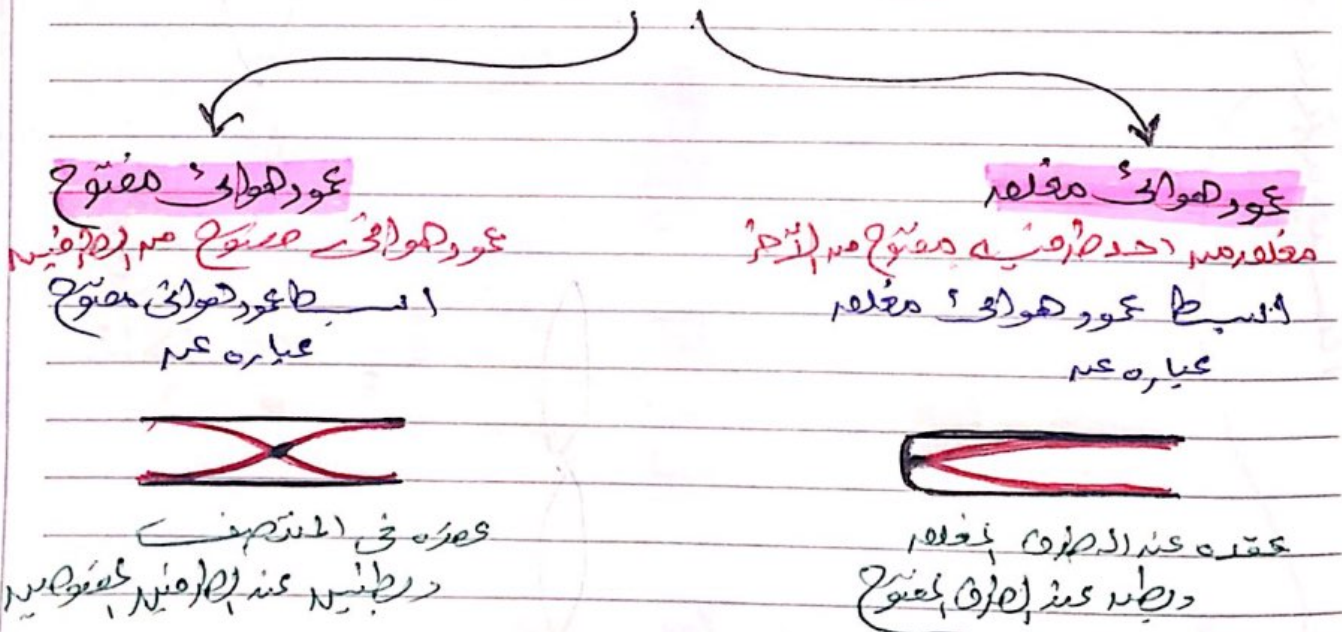 عمود هوائى مغلق
مغلق من احد طرفيه مفتوح من الآخر
ابسط عمود هوائى مغلق
عباره عن
عقده عند الطرف المغلق
وبطن عند الطرف المفتوح
عمود هوائى مفتوح
عمود هوائى مفتوح من الطرفين
ابسط عمود هوائى مفتوح
عباره عن
عقده فى المنتصف
وبطنين عند الطرفين المفتوحين